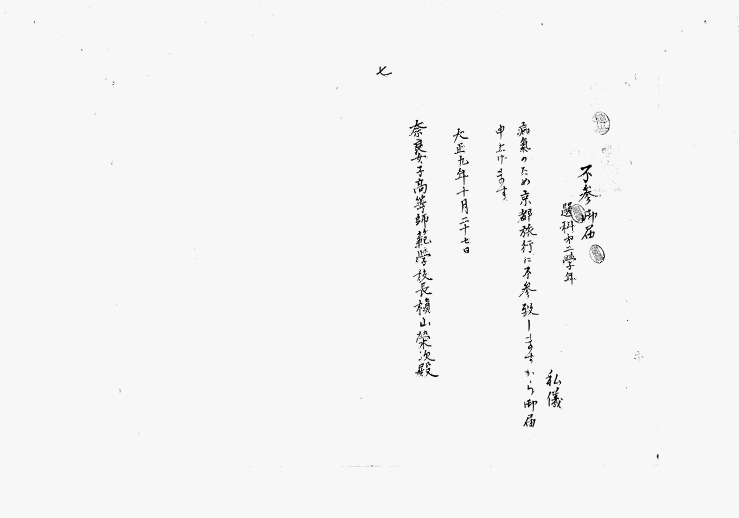 不参御届
選科第二學年
私儀
病氣のため京都旅行に不参致しますから御届
申上げます
大正九年十月二十七日
奈良女子高等師範学校長槇山榮次殿
七